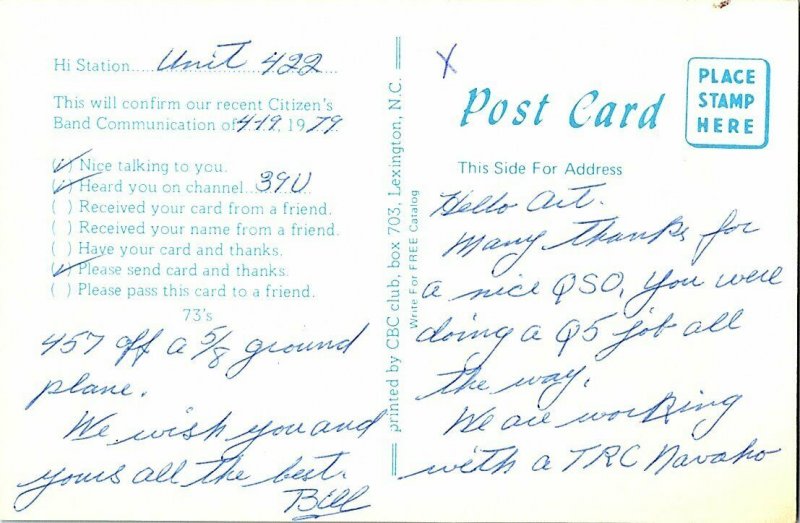 Hi Station Unit 422
This will confirm our recent Citizen's
Band Communication of 4-19, 1979.
(✓) Nice talking to you.
(✓) Heard you on channel 39U
( ) Received your card from a friend.
( ) Received your name from a friend.
( ) Have your card and thanks.
(✓) Please send card and thanks.
( ) Please pass this card to a friend.
73's
457 off a 5/8 ground
plane.
We wish you and
yours all the best.
Bill
printed by CBC club, box 703, Lexington, N.C.
Write For FREE Catalog
X
Post Card
PLACE
STAMP
HERE
This Side For Address
Hello Art.
Many thanks for
a nice QSO, you were
doing a Q5 job all
the way.
We are working
with a TRC Navaho